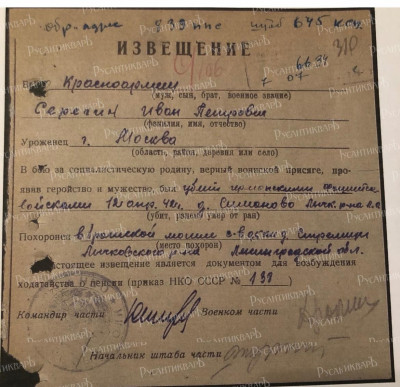 обр. адрес 939 ппс штаб 645 ксп.
ИЗВЕЩЕНИЕ
310
Ваш Красноармеец
(муж, сын, брат, военное звание)
Серегин Иван Петрович
(фамилия, имя, отчество)
Уроженец г. Москва
(область, район, деревня или село)
В бою за социалистическую родину, верный воинской присяге, про-
явив геройство и мужество, был убит германскими
войсками 12 апр. 42г. д. Симоново Личк. р-на Л.О.
(убит, ранен, умер от ран)
Похоронен в братской могиле з-вос. д. Стрелицы
(место похорон)
Лычковского р-на Ленинградской обл.
Настоящее извещение является документом для возбуждения
ходатайства о пенсии (приказ НКО СССР № 138)
Командир части Военком части
Начальник штаба части
РУСАНТИКВАРЪ